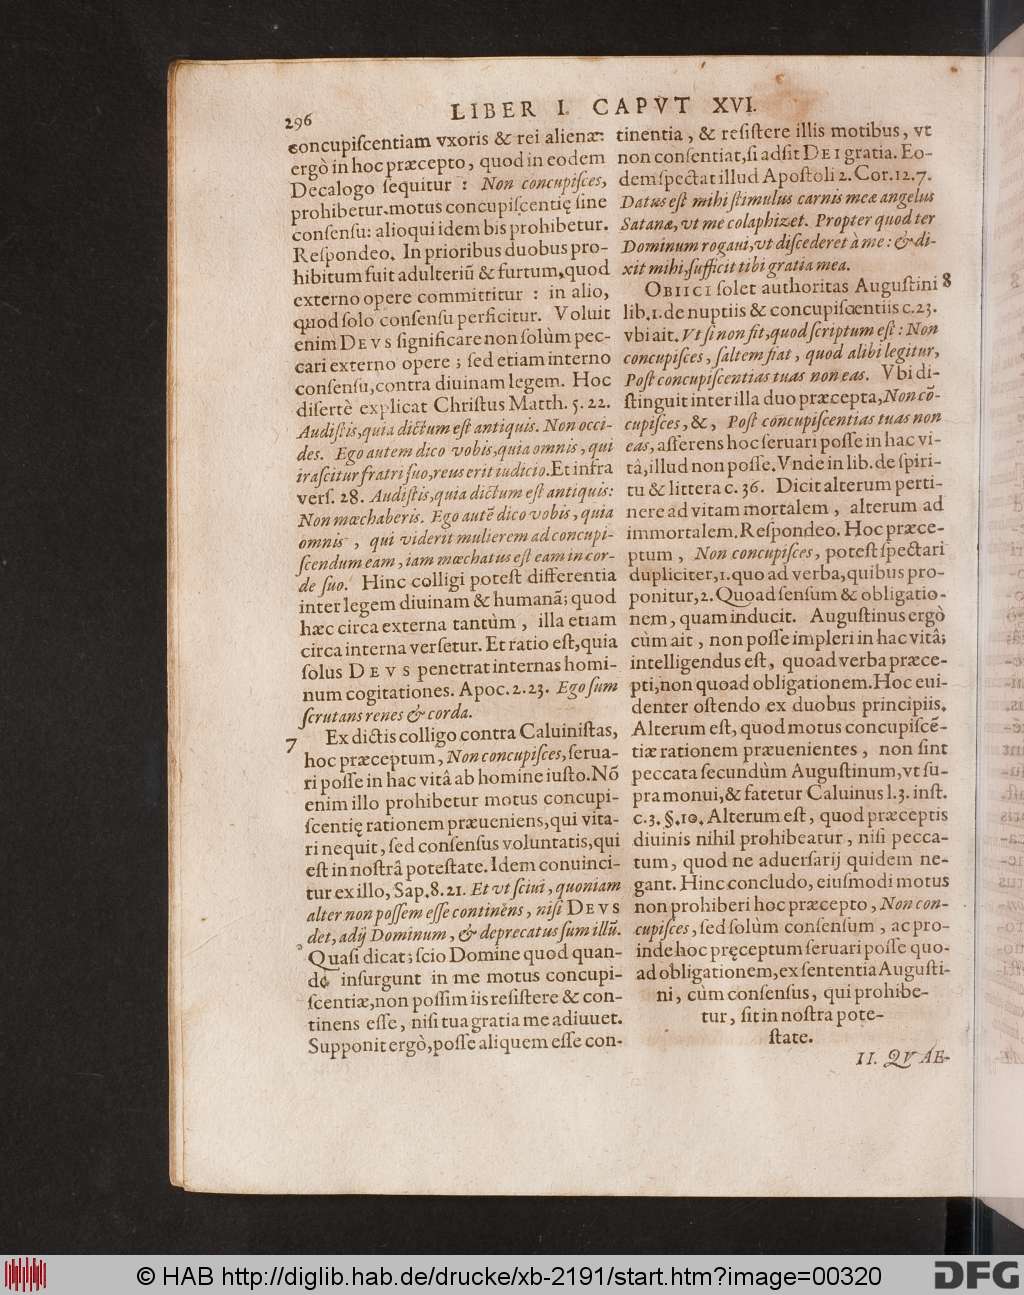 296
LIBER I. CAPVT XVI.
concupiſcentiam vxoris & rei alienæ:
ergò in hoc præcepto, quod in eodem
Decalogo ſequitur : Non concupiſces,
prohibetur motus concupiſcentię ſine
conſenſu: alioqui idem bis prohibetur.
Reſpondeo. In prioribus duobus pro-
hibitum fuit adulteriũ & furtum, quod
externo opere committitur : in alio,
quod ſolo conſenſu perficitur. Voluit
enim DEVS ſignificare non ſolùm pec-
cari externo opere ; ſed etiam interno
conſenſu, contra diuinam legem. Hoc
diſertè explicat Chriſtus Matth. 5. 22.
Audiſtis, quia dictum eſt antiquis. Non occi-
des. Ego autem dico vobis, quia omnis, qui
iraſcitur fratri ſuo, reus erit iudicio. Et infra
verſ. 28. Audiſtis, quia dictum eſt antiquis:
Non mœchaberis. Ego autẽ dico vobis, quia
omnis, qui viderit mulierem ad concupi-
ſcendum eam, iam mœchatus eſt eam in cor-
de ſuo. Hinc colligi poteſt differentia
inter legem diuinam & humanã; quod
hæc circa externa tantùm, illa etiam
circa interna verſetur. Et ratio eſt, quia
ſolus DEVS penetrat internas homi-
num cogitationes. Apoc. 2. 23. Ego ſum
ſcrutans renes & corda.
7 Ex dictis colligo contra Caluiniſtas,
hoc præceptum, Non concupiſces, ſerua-
ri poſſe in hac vitâ ab homine iuſto. Nõ
enim illo prohibetur motus concupi-
ſcentię rationem præueniens, qui vita-
ri nequit, ſed conſenſus voluntatis, qui
eſt in noſtrâ poteſtate. Idem conuinci-
tur ex illo, Sap. 8. 21. Et vt ſciui, quoniam
alter non poſſem eſſe continens, niſi DEVS
det, adij Dominum, & deprecatus ſum illũ.
Quaſi dicat; ſcio Domine quod quan-
do inſurgunt in me motus concupi-
ſcentiæ, non poſſim iis reſiſtere & con-
tinens eſſe, niſi tua gratia me adiuuet.
Supponit ergò, poſſe aliquem eſſe con-
tinentia, & reſiſtere illis motibus, vt
non conſentiat, ſi adſit DEI gratia. Eo-
dem ſpectat illud Apoſtoli 2. Cor. 12. 7.
Datus eſt mihi ſtimulus carnis meæ angelus
Satanæ, vt me colaphizet. Propter quod ter
Dominum rogaui, vt diſcederet à me : & di-
xit mihi, ſufficit tibi gratia mea.
OBIICI ſolet authoritas Auguſtini 8
lib. 1. de nuptiis & concupiſcentiis c. 23.
vbi ait. Vt ſi non fit, quod ſcriptum eſt : Non
concupiſces, ſaltem fiat, quod alibi legitur,
Poſt concupiſcentias tuas non eas. Vbi di-
ſtinguit inter illa duo præcepta, Non cõ-
cupiſces, &, Poſt concupiſcentias tuas non
eas, aſſerens hoc ſeruari poſſe in hac vi-
tâ, illud non poſſe. Vnde in lib. de ſpiri-
tu & littera c. 36. Dicit alterum perti-
nere ad vitam mortalem, alterum ad
immortalem. Reſpondeo. Hoc præce-
ptum, Non concupiſces, poteſt ſpectari
dupliciter, 1. quo ad verba, quibus pro-
ponitur, 2. Quoad ſenſum & obligatio-
nem, quam inducit. Auguſtinus ergò
cùm ait, non poſſe impleri in hac vitâ;
intelligendus eſt, quoad verba præce-
pti, non quoad obligationem. Hoc eui-
denter oſtendo ex duobus principiis.
Alterum eſt, quod motus concupiſcẽ-
tiæ rationem præuenientes, non ſint
peccata ſecundùm Auguſtinum, vt ſu-
pra monui, & fatetur Caluinus l. 3. inſt.
c. 3. §. 10. Alterum eſt, quod præceptis
diuinis nihil prohibeatur, niſi pecca-
tum, quod ne aduerſarij quidem ne-
gant. Hinc concludo, eiuſmodi motus
non prohiberi hoc præcepto, Non con-
cupiſces, ſed ſolùm conſenſum, ac pro-
inde hoc pręceptum ſeruari poſſe quo-
ad obligationem, ex ſententia Auguſti-
ni, cùm conſenſus, qui prohibe-
tur, ſit in noſtra pote-
ſtate.
II. QVAE-
© HAB http://diglib.hab.de/drucke/xb-2191/start.htm?image=00320
DFG